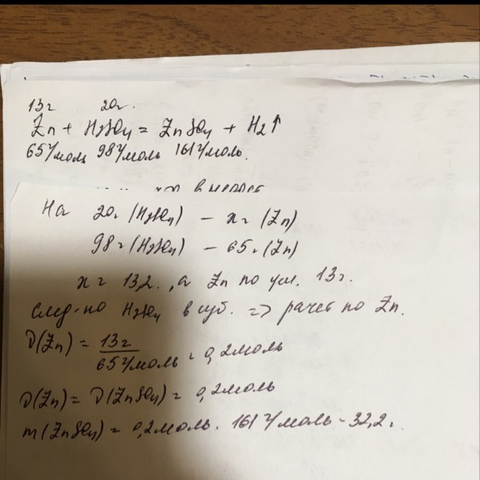 13г 20г.
Zn + H2SO4 = ZnSO4 + H2↑
65г/моль 98г/моль 161г/моль.
На 20г (H2SO4) – xг (Zn)
98г (H2SO4) – 65г (Zn)
x = 13,2г, а Zn по усл. 13г.
след-но H2SO4 в изб. => расчет по Zn.
ν(Zn) = 13г / 65г/моль = 0,2моль
ν(Zn) = ν(ZnSO4) = 0,2моль
m(ZnSO4) = 0,2моль · 161г/моль = 32,2г.